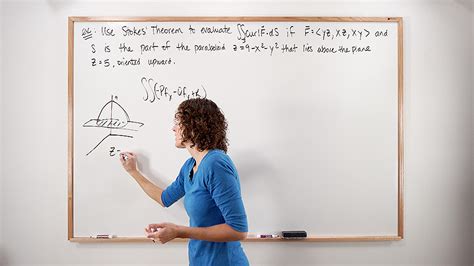 ex: Use Stokes' Theorem to evaluate ∬ₛ curl F⃗·dS⃗ if F⃗=<yz, xz, xy> and
S is the part of the paraboloid z=9-x²-y² that lies above the plane
z=5, oriented upward.
∬(-Pfₓ-Qf_y+R)
z=